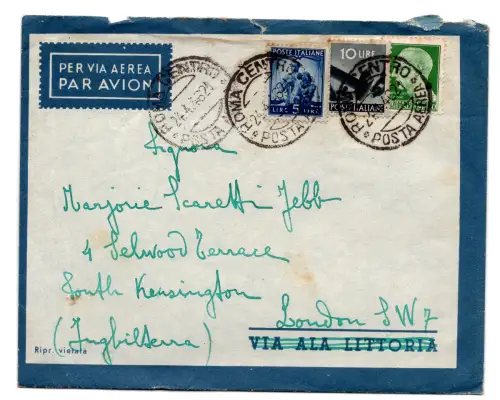 PER VIA AEREA
PAR AVION
POSTE ITALIANE
LIRE 5 LIRE
10 LIRE
POSTE ITALIANE
ROMA CENTRO
POSTA
ROMA CENTRO
POSTA
CENTRO
POSTA AEREA
Signora
Marjorie Scaretti Jebb
4 Selwood Terrace
South Kensington
London SW7
(Inghilterra)
VIA ALA LITTORIA
Ripr. vietata